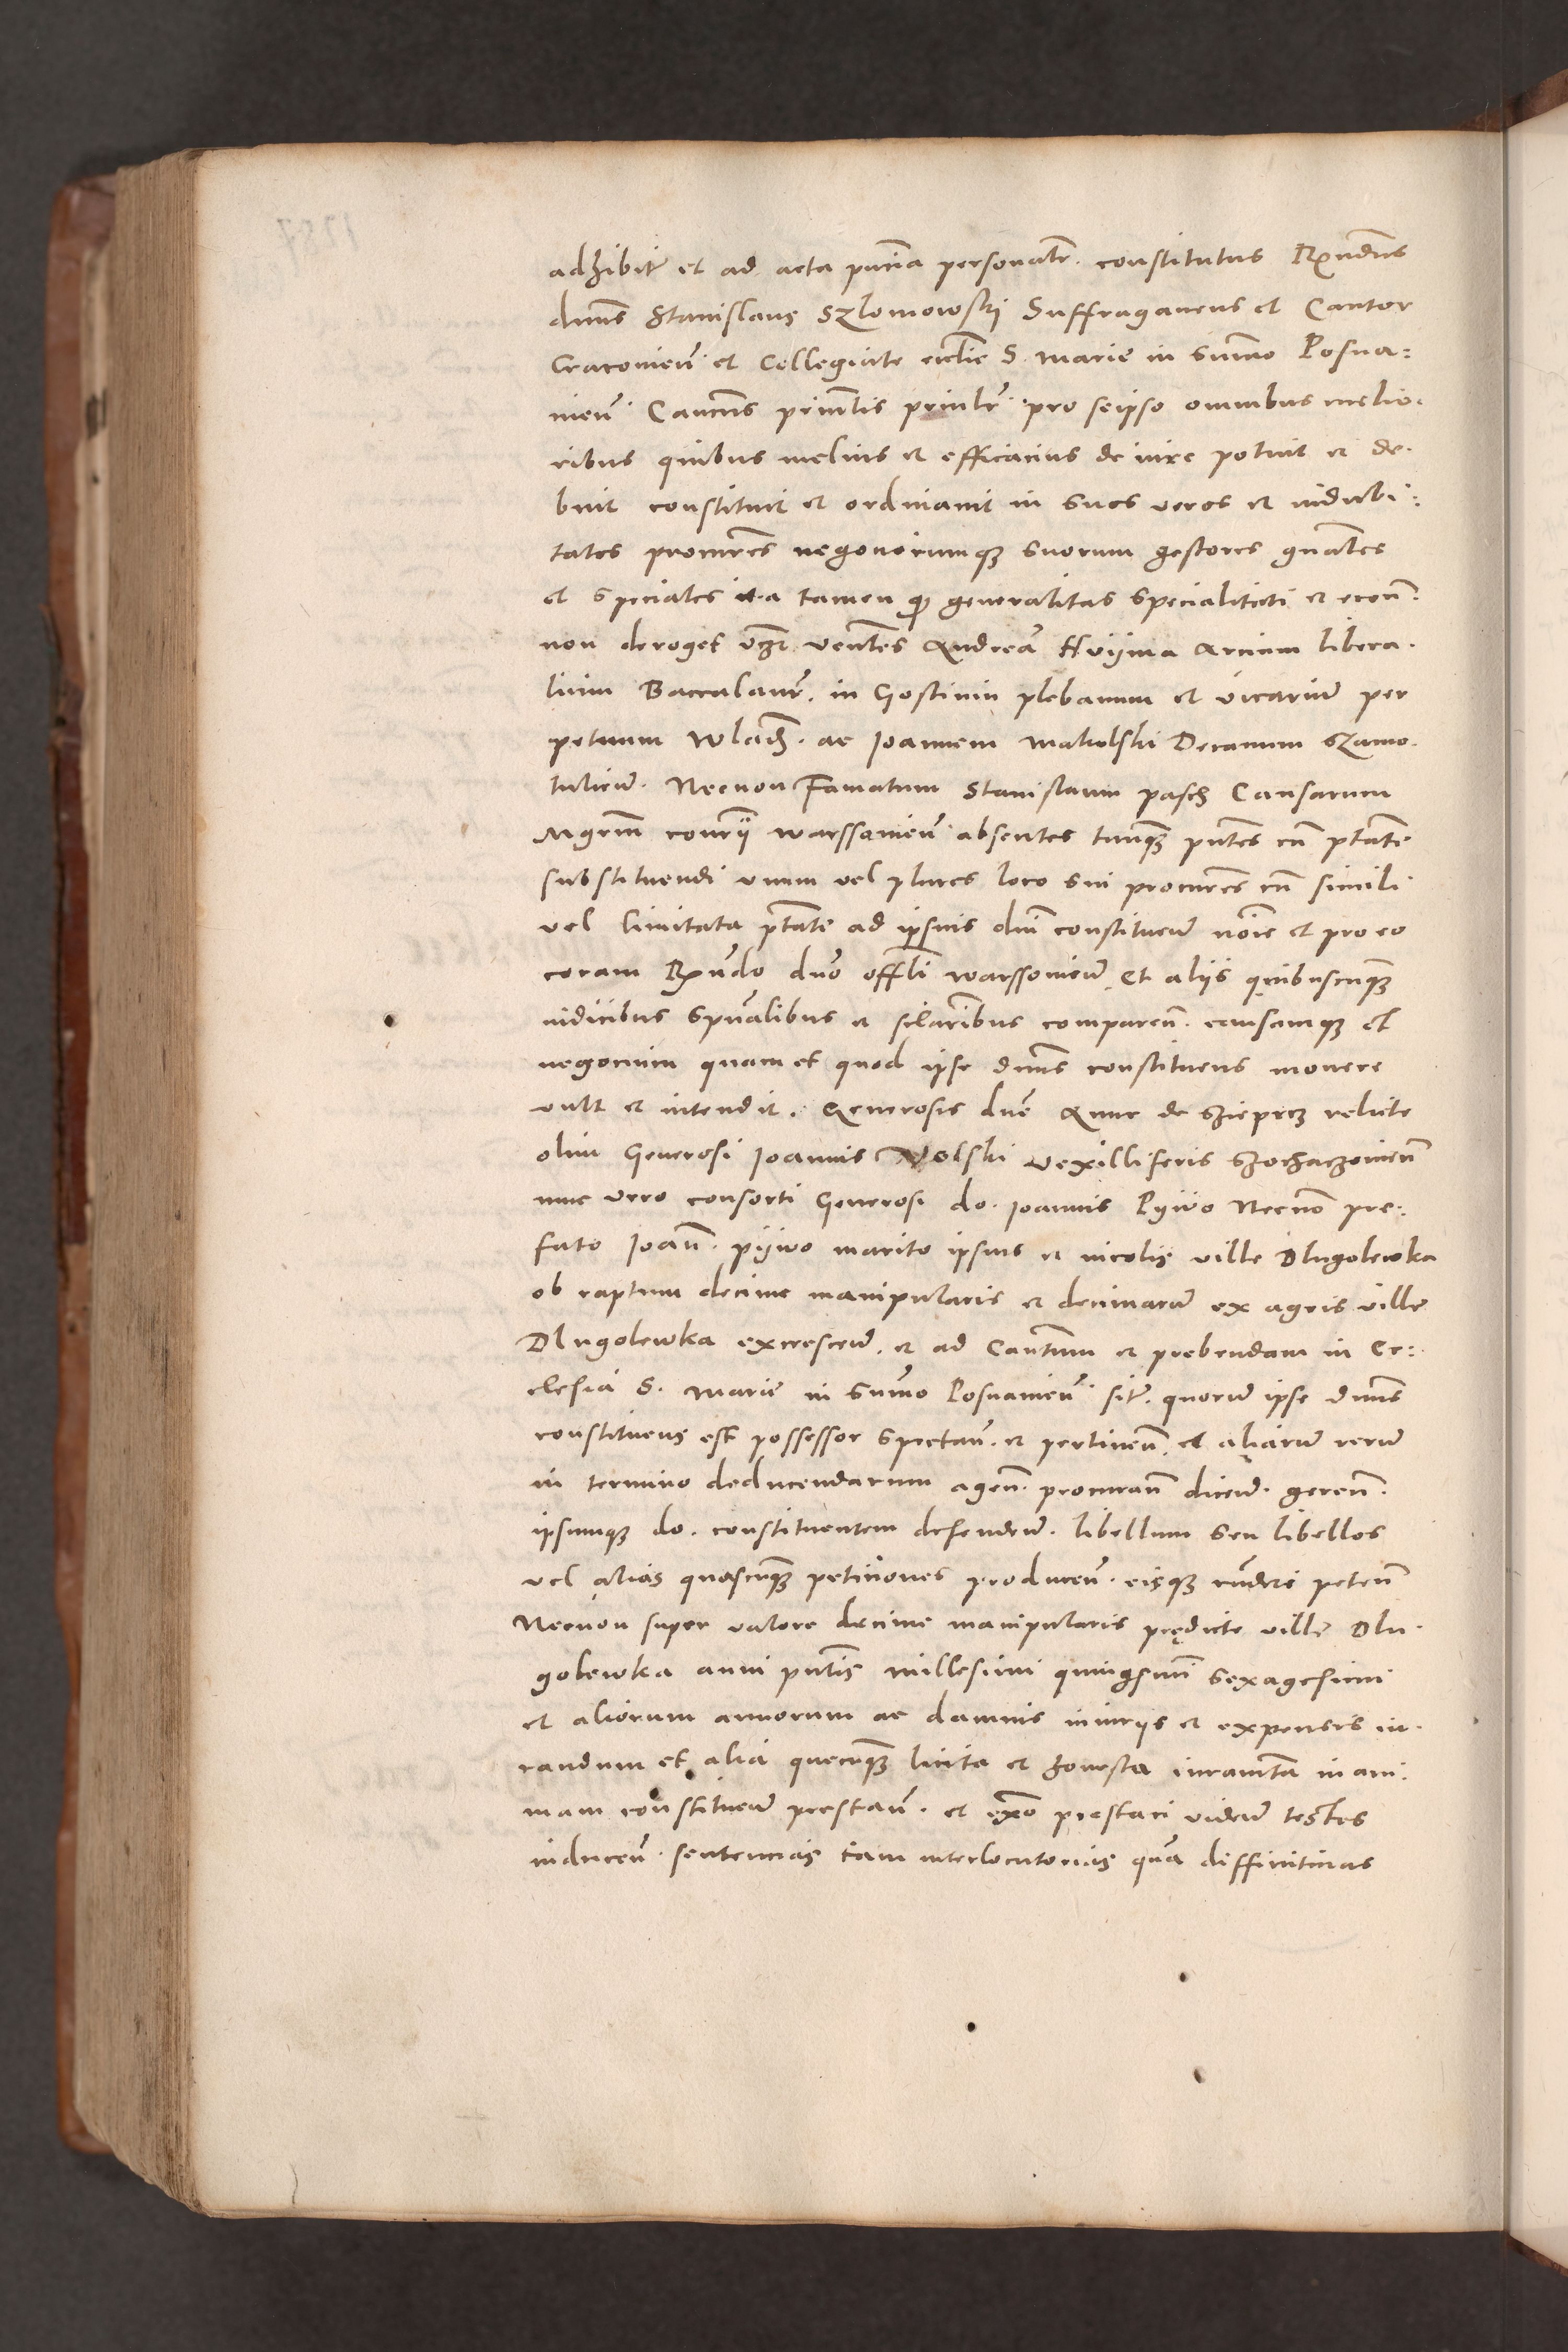 adhibitis et ad acta pncia personalr. constitutus Rxndus
dnus Stanislaus Szlomowski Suffraganeus et Cantor
Cracovien. et Collegiate ecclie S. Marie in Summo Posna=
nien. Canonicus principalis principalr. pro seipso omnibus melio.
ribus quibus melius et efficacius de iure potuit et de.
buit constituit et ordinavit in suos veros et indubi:
tatos procures negociorumque suorum gestores gnales
et speciales ita tamen quod generalitas specialitati et econ.
non deroget vzt. Ventes Andream Arcium libera.
lium Baccalaur. in Gostinin plebanum et vicarium per
petuum Wladis. ac Ioannem Makolski Decanum Szamo.
tulien. Necnon Famatum Stanislaum pasch Causarum
Mgrm consrii Warssovien. absentes tanquam pntes cum ptate
substituendi unum vel plures loco sui procures cum simili
vel limitata ptate ad ipsius dni constituen. noie et pro eo
coram Rxndo dno offli Warssovien. et aliis quibuscunque
iudicibus spualibus et secularibus comparen. causamque et
negocium quam et quod ipse dnus constituens movere
vult et intendit. Generosis dne Anne de Szieprcz relicte
olim Generosi Ioannis Wolski vexilliferis Szochaczovien
nunc vero consorti Generosi do. Ioannis Pywo Necno pre:
fato Ioan. pywo marito ipsius et incolis ville Dlugolewka
ob raptum decime manipularis et decimarum ex agris ville
Dlugolewka excrescen. et ad Cantum et prebendam in Ec:
clesia S. Marie in Summo Posnanien. sit. quorum ipse dnus
constituens est possessor spectan. et pertinen. et aliarum rerum
in termino deducendarum agen. procuran dicen. geren.
ipsumque do. constituentem defenden. libellum seu libellos
vel alias quascunque peticiones producen. eisque rnderi peten
Necnon super valore decime manipularis predicte ville Dlu.
golewka anni pntis millesimi quingesimi sexagesimi
et aliorum annorum ac damnis iniuriis et expensis iu.
randum et alia quecunque licita et honesta iuramta in ani.
mam constituen. prestan. et exo prestari viden. testes
inducen. sentencias tam interlocutorias quam diffinitivas